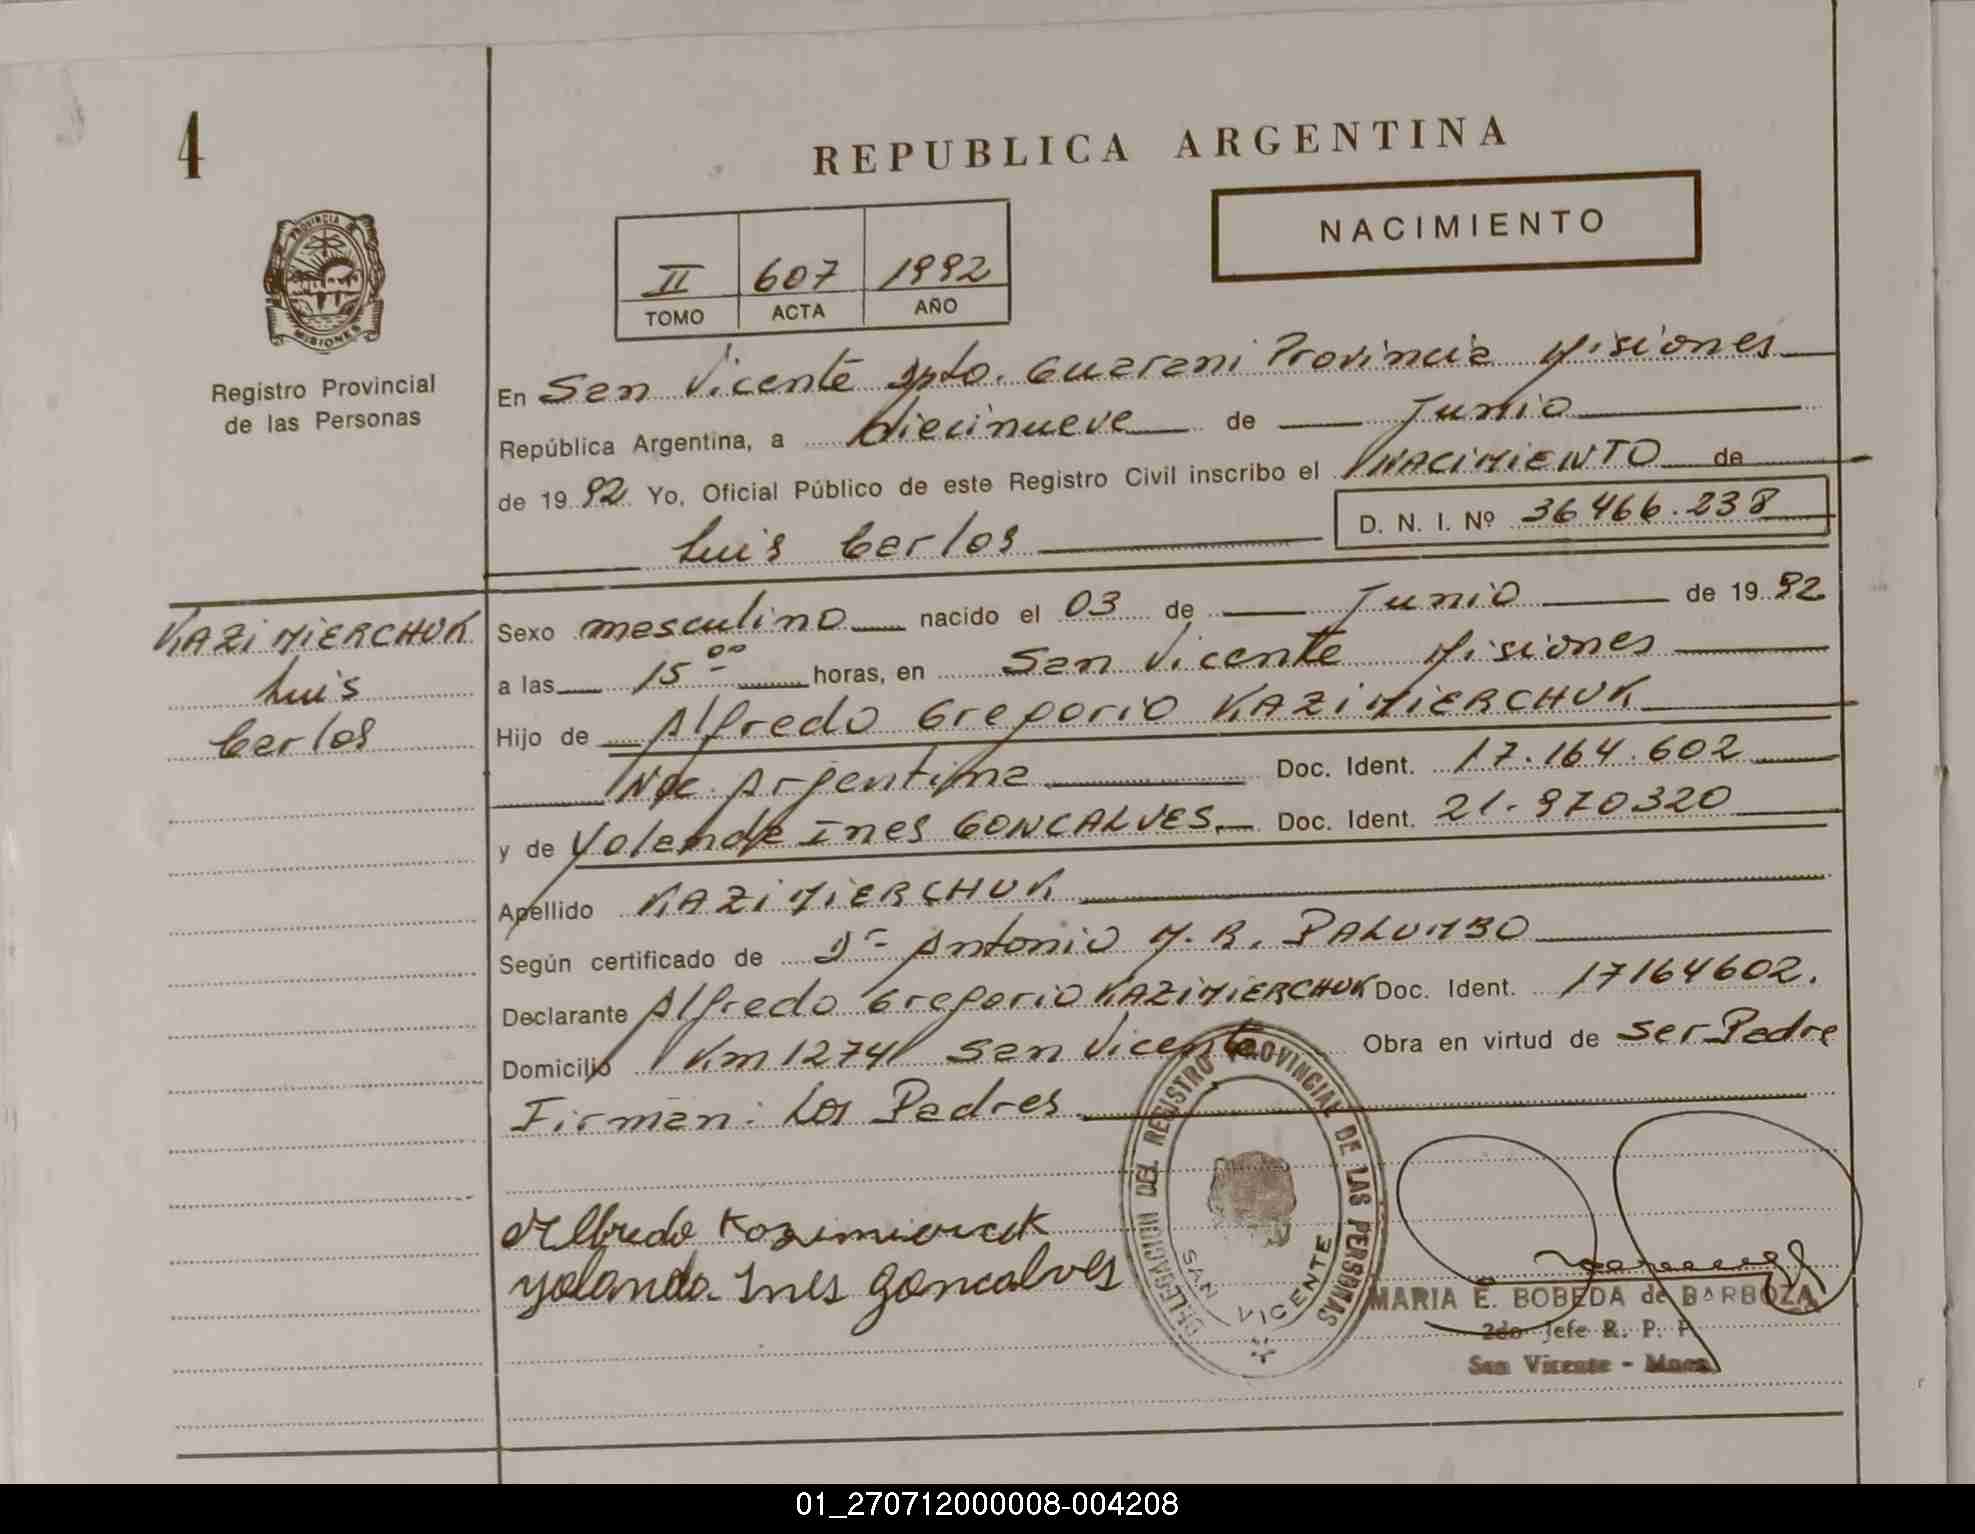 4
REPUBLICA ARGENTINA
NACIMIENTO
PROVINCIA DE
MISIONES
II 607 1992
TOMO ACTA AÑO
Registro Provincial
de las Personas
En San Vicente Dpto. Guarani Provincia Misiones
República Argentina, a diecinueve de Junio
de 1992 Yo, Oficial Público de este Registro Civil inscribo el NACIMIENTO de
Luis Carlos D. N. I. Nº 36466.238
KAZIMIERCHUK
Luis
Carlos
Sexo masculino nacido el 03 de Junio de 1992
a las 15 00 horas, en San Vicente Misiones
Hijo de Alfredo Gregorio KAZIMIERCHUK
Nac. Argentina Doc. Ident. 17.164.602
y de Yolanda Ines GONCALVES. Doc. Ident. 21.970320
Apellido KAZIMIERCHUK
Según certificado de Dr Antonio M. R. PALUMBO
Declarante Alfredo Gregorio KAZIMIERCHUK Doc. Ident. 17164602.
Domicilio Km 1274 San Vicente Obra en virtud de Ser Padre
Firman: Los Padres
Alfredo
Yolanda Ines Goncalves
DELEGACION DEL REGISTRO PROVINCIAL DE LAS PERSONAS
SAN VICENTE
MARIA E. BOBEDA de BARBOZA
2do Jefe R. P. P.
San Vicente - Mnes.
01_270712000008-004208